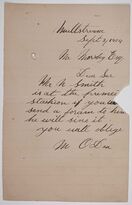 Millstream
Sept 2, 1914
Mr. Morsby Esq.
Dear Sir
Mr N. Smith
is at the
station if you
send a forain to him
he will sine it
you will oblige
M O'Dea